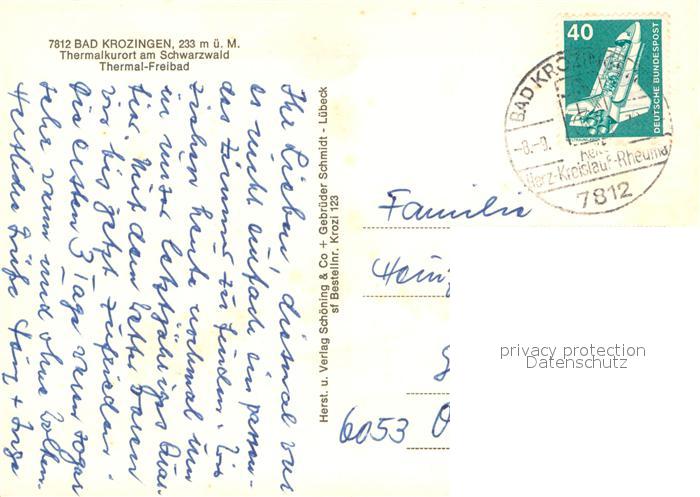 7812 BAD KROZINGEN, 233 m ü. M.
Thermalkurort am Schwarzwald
Thermal-Freibad
Ihr Lieben diesmal war
es nicht einfach ein passen-
des Zimmer zu finden. Wir
ziehen heute nochmal um
in unser letztjähriges Quar-
tier. Mit dem Wetter waren
wir bis jetzt zufrieden.
Die ersten 3 Tage waren sogar
sehr warm und ohne Wolken.
Herzliche Grüße Heinz + Inge
Herst. u. Verlag Schöning & Co + Gebrüder Schmidt - Lübeck
sf Bestellnr. Krozi 123
40
DEUTSCHE BUNDESPOST
BAD KROZINGEN
-8.-9.
Herz-Kreislauf-Rheuma
7812
Familie
Heinz
6053
privacy protection
Datenschutz